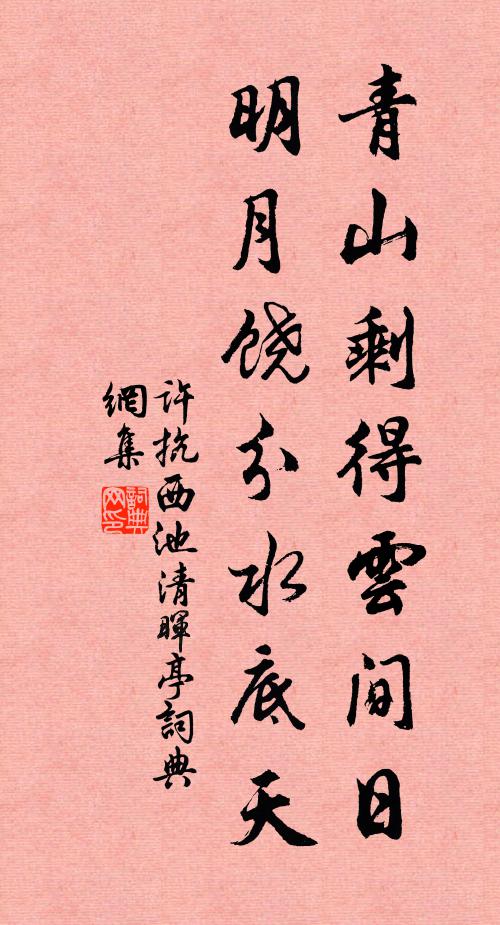 青山剩得雲間日
明月饶分水底天
許抗西池清暉亭詞典
網集
詞典
网印